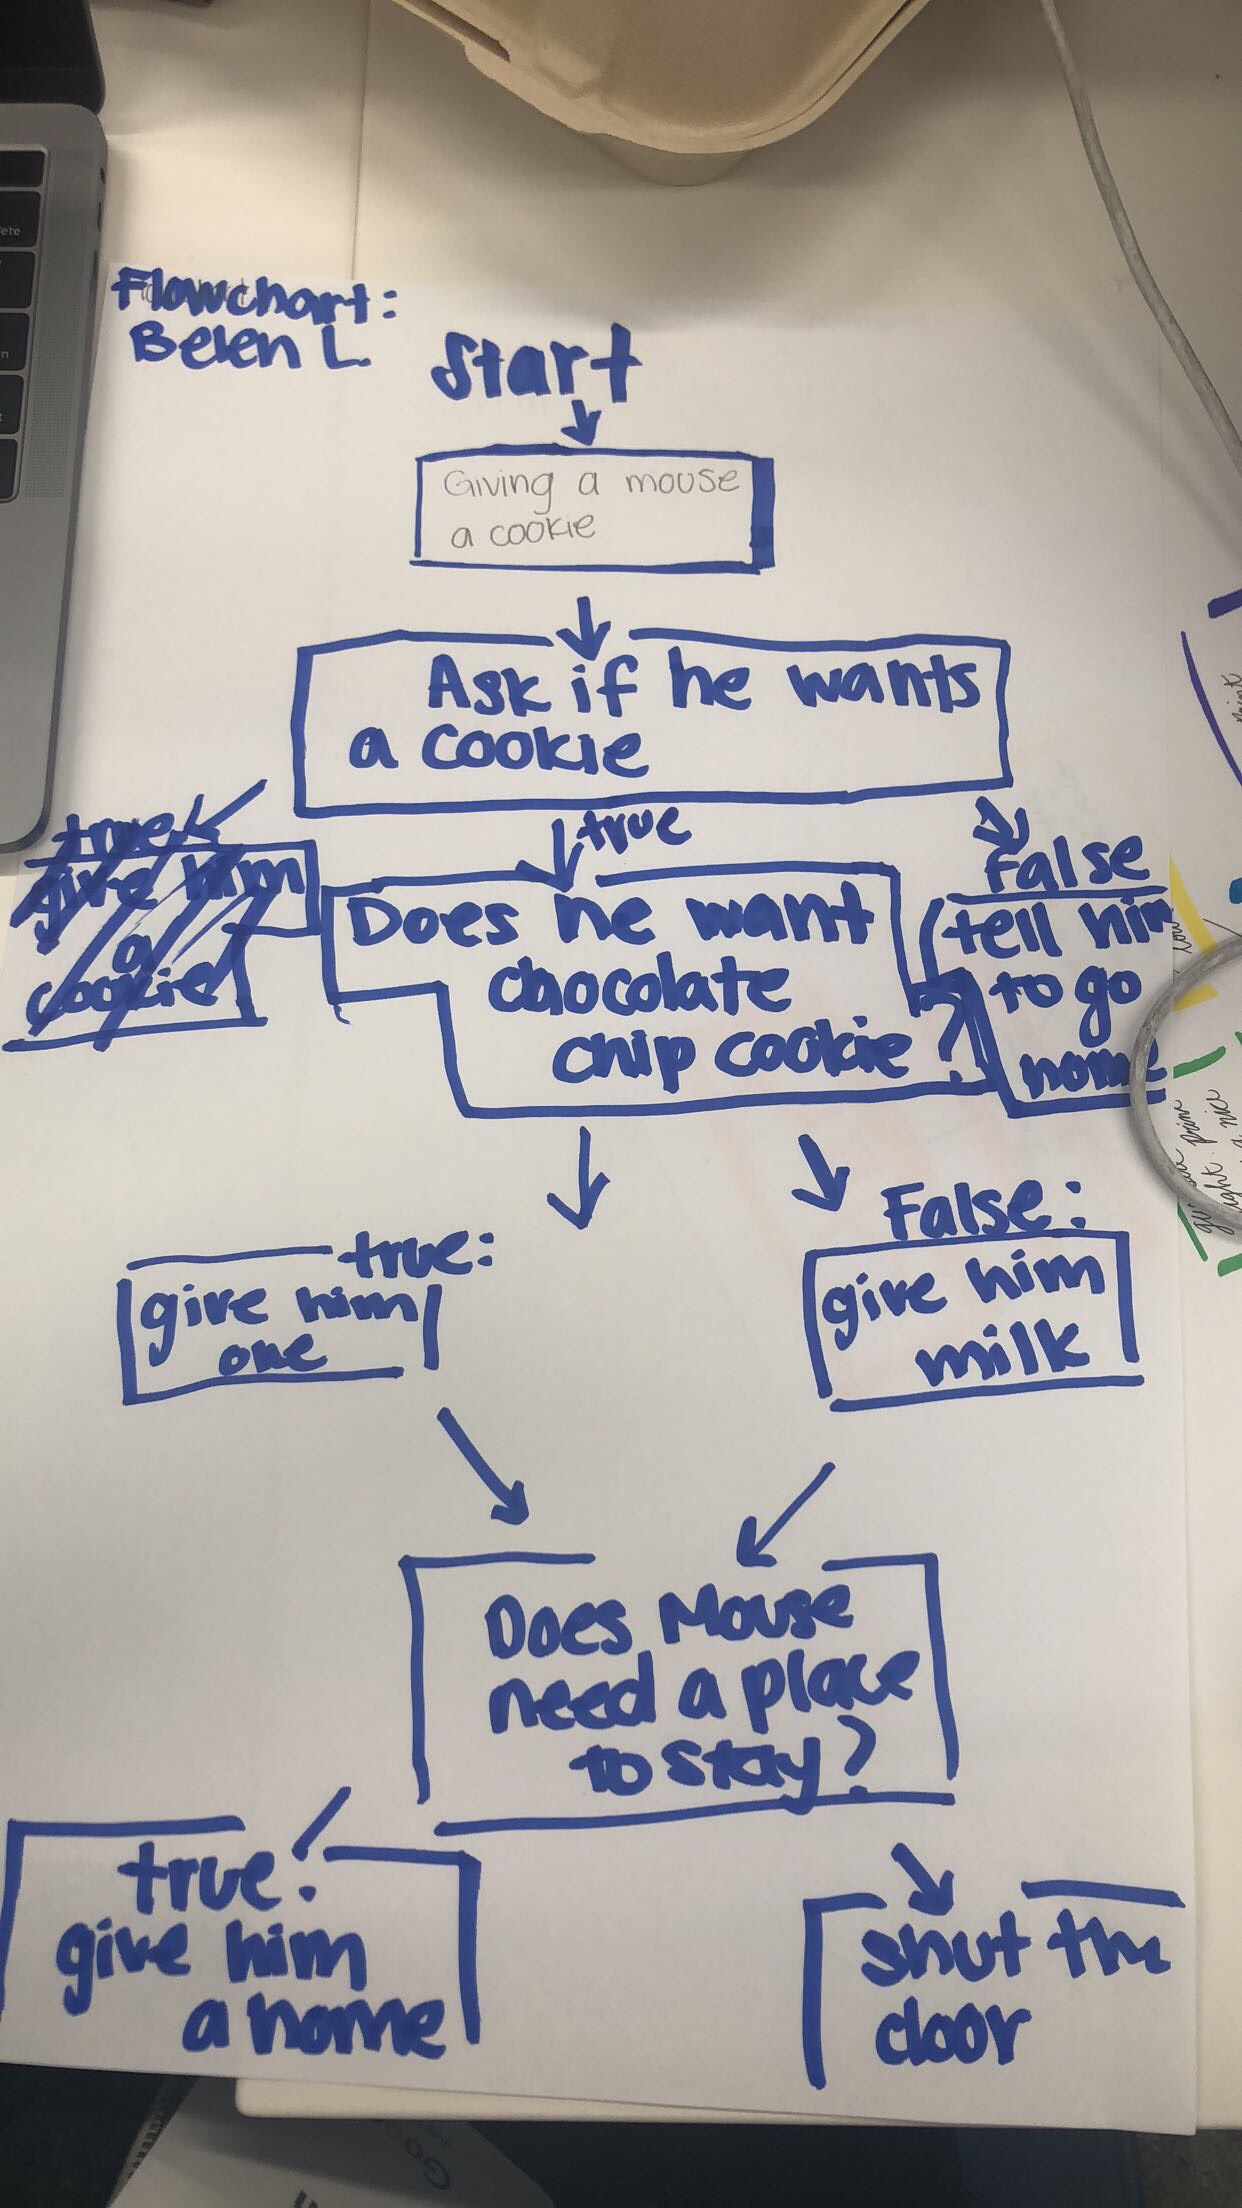 Flowchart:
Belen L.
Start
Giving a mouse
a cookie
Ask if he wants
a cookie
true
give him
a
cookie
true
False
tell him
to go
home
Does he want
chocolate
chip cookie?
true:
give him
one
False:
give him
milk
Does Mouse
need a place
to stay?
true:
give him
a home
shut the
door